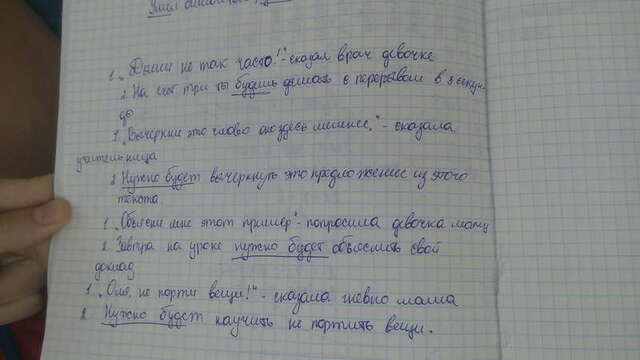 1. „Дыши не так часто!"-сказал врач девочке
2 На счёт три ты будешь дышать с перерывом в 3 секун-
ды
1. „Вычеркни это слово оно здесь лишнее,"-сказала
учительница
2 Нужно будет вычеркнуть это предложение из этого
текста.
1. „Объясни мне этот пример"-попросила девочка маму
2 Завтра на уроке нужно будет объяснить свой
доклад
1 „Оля, не порти вещи!"-сказала гневно мама
2. Нужно будет научить не портить вещи.